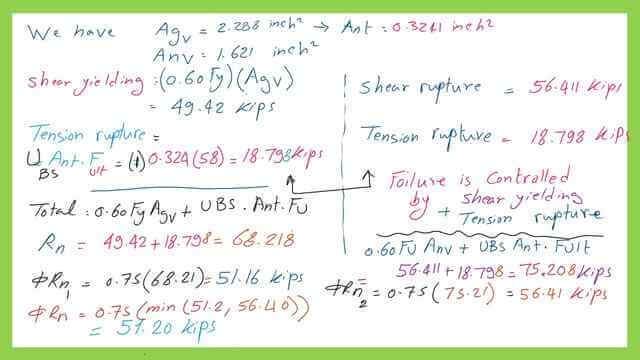 We have Agv = 2.288 inch² → Ant = 0.3241 inch²
Anv = 1.621 inch²
Shear yielding = (0.60Fy)(Agv)
= 49.42 kips
Tension rupture =
UBS Ant. Fult = (1) 0.324(58) = 18.798 kips
Total = 0.60Fy Agv + UBS. Ant. FU
Rn = 49.42 + 18.798 = 68.218
ΦRn1 = 0.75(68.21) = 51.16 kips
ΦRn = 0.75(min(51.2, 56.40))
= 51.20 kips
Shear rupture = 56.411 kips
Tension rupture = 18.798 kips
Failure is Controlled
by shear yielding
+ Tension rupture
0.60FU Anv + UBS Ant. Fult
56.411 + 18.798 = 75.208 kips
ΦRn2 = 0.75(75.21) = 56.41 kips